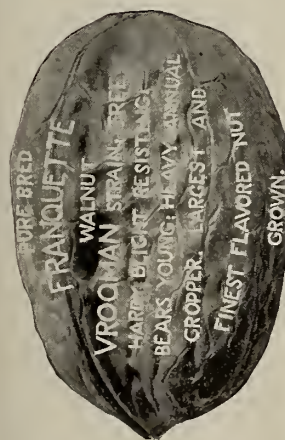 PURE BRED
FRANQUETTE
WALNUT
VROOMAN STRAIN, TREE
HARDY BLIGHT RESISTING;
BEARS YOUNG; HEAVY ANNUAL
CROPPER. LARGEST AND
FINEST FLAVORED NUT
GROWN.